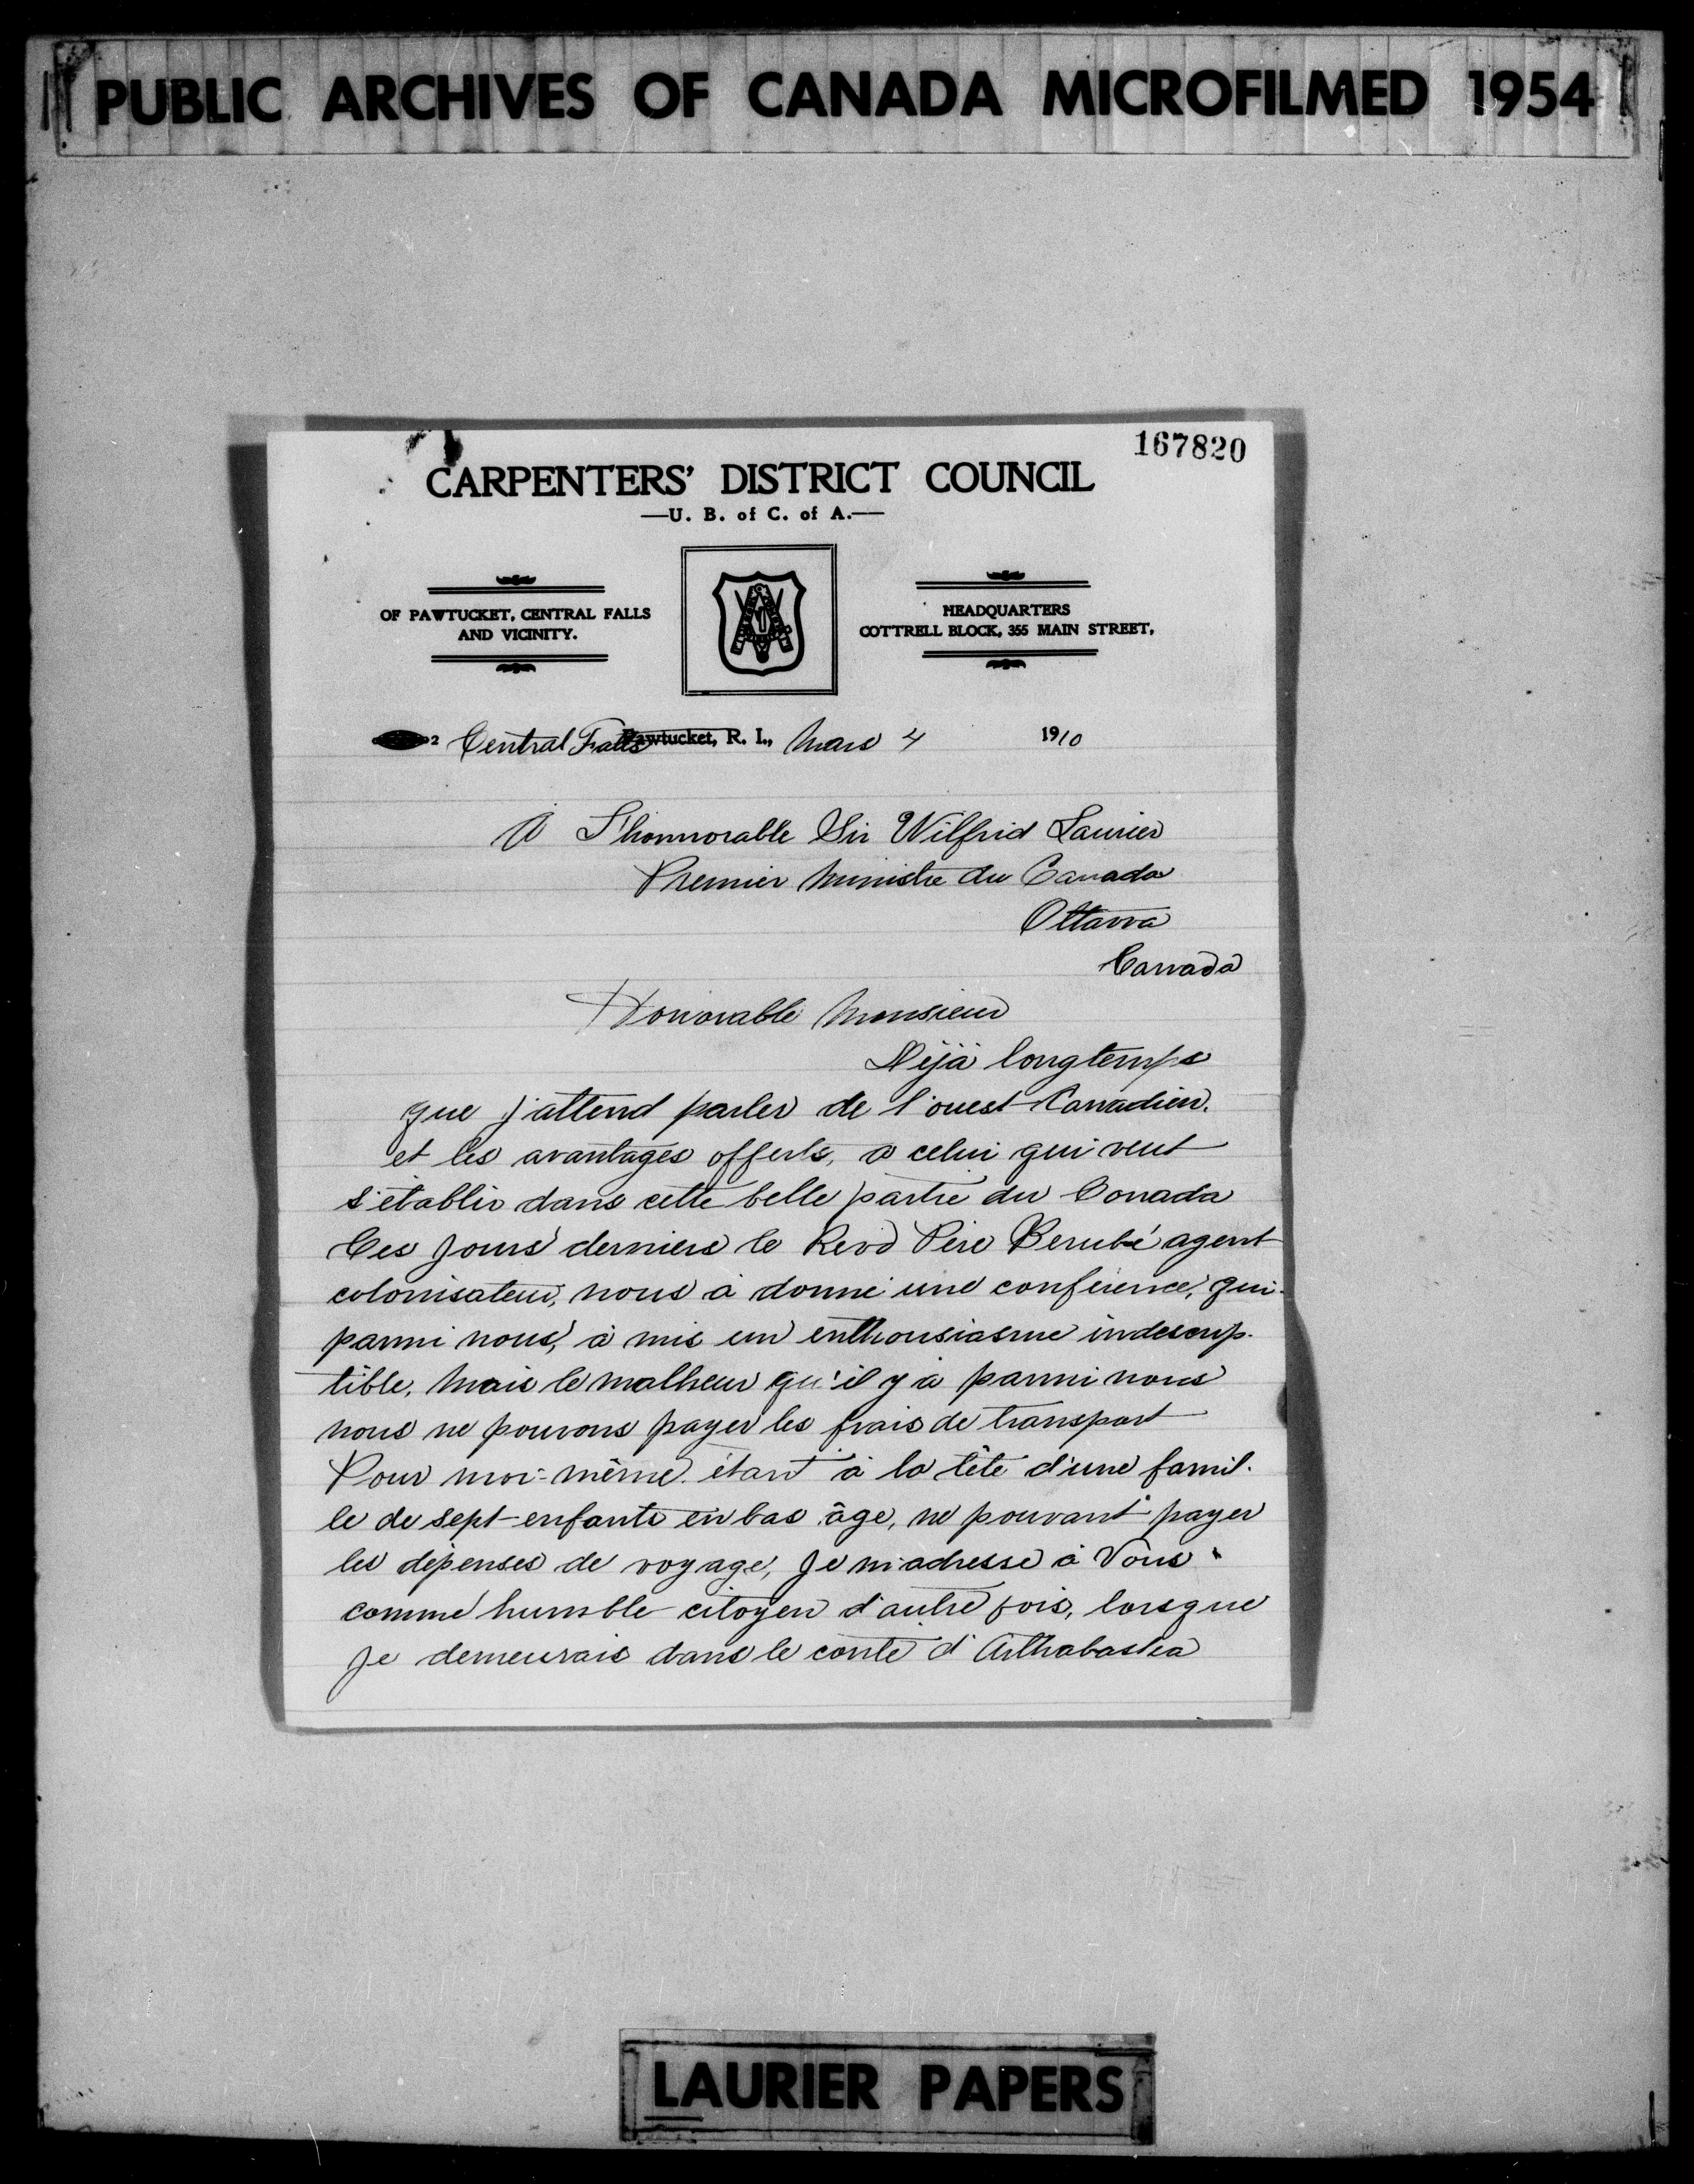 PUBLIC ARCHIVES OF CANADA MICROFILMED 1954
167820
CARPENTERS' DISTRICT COUNCIL
—U. B. of C. of A.—
OF PAWTUCKET, CENTRAL FALLS
AND VICINITY.
HEADQUARTERS
COTTRELL BLOCK, 355 MAIN STREET,
2 Central Falls Pawtucket, R. I., Mars 4 1910
A L'honnorable Sir Wilfrid Laurier
Premier Ministre du Canada
Ottawa
Canada
Honorable Monsieur
Déjà longtemps
que j'attend parler de l'ouest Canadien.
et les avantages offerts, a celui qui veut
s'établir dans cette belle partie du Canada
Ces jours derniers le Revd Père Berubé agent
colonisateur, nous à donné une conférence, qui
parmi nous, à mis un enthousiasme indescrip-
tible, Mais le malheur qu'il y à parmi nous
nous ne pouvons payer les frais de transport
Pour moi-même étant à la tête d'une famil-
le de sept enfants en bas âge, ne pouvant payer
les dépenses de voyage, Je m'adresse à Vous
comme humble citoyen d'autre fois, lorsque
Je demeurais dans le conté d'Arthabaska
LAURIER PAPERS